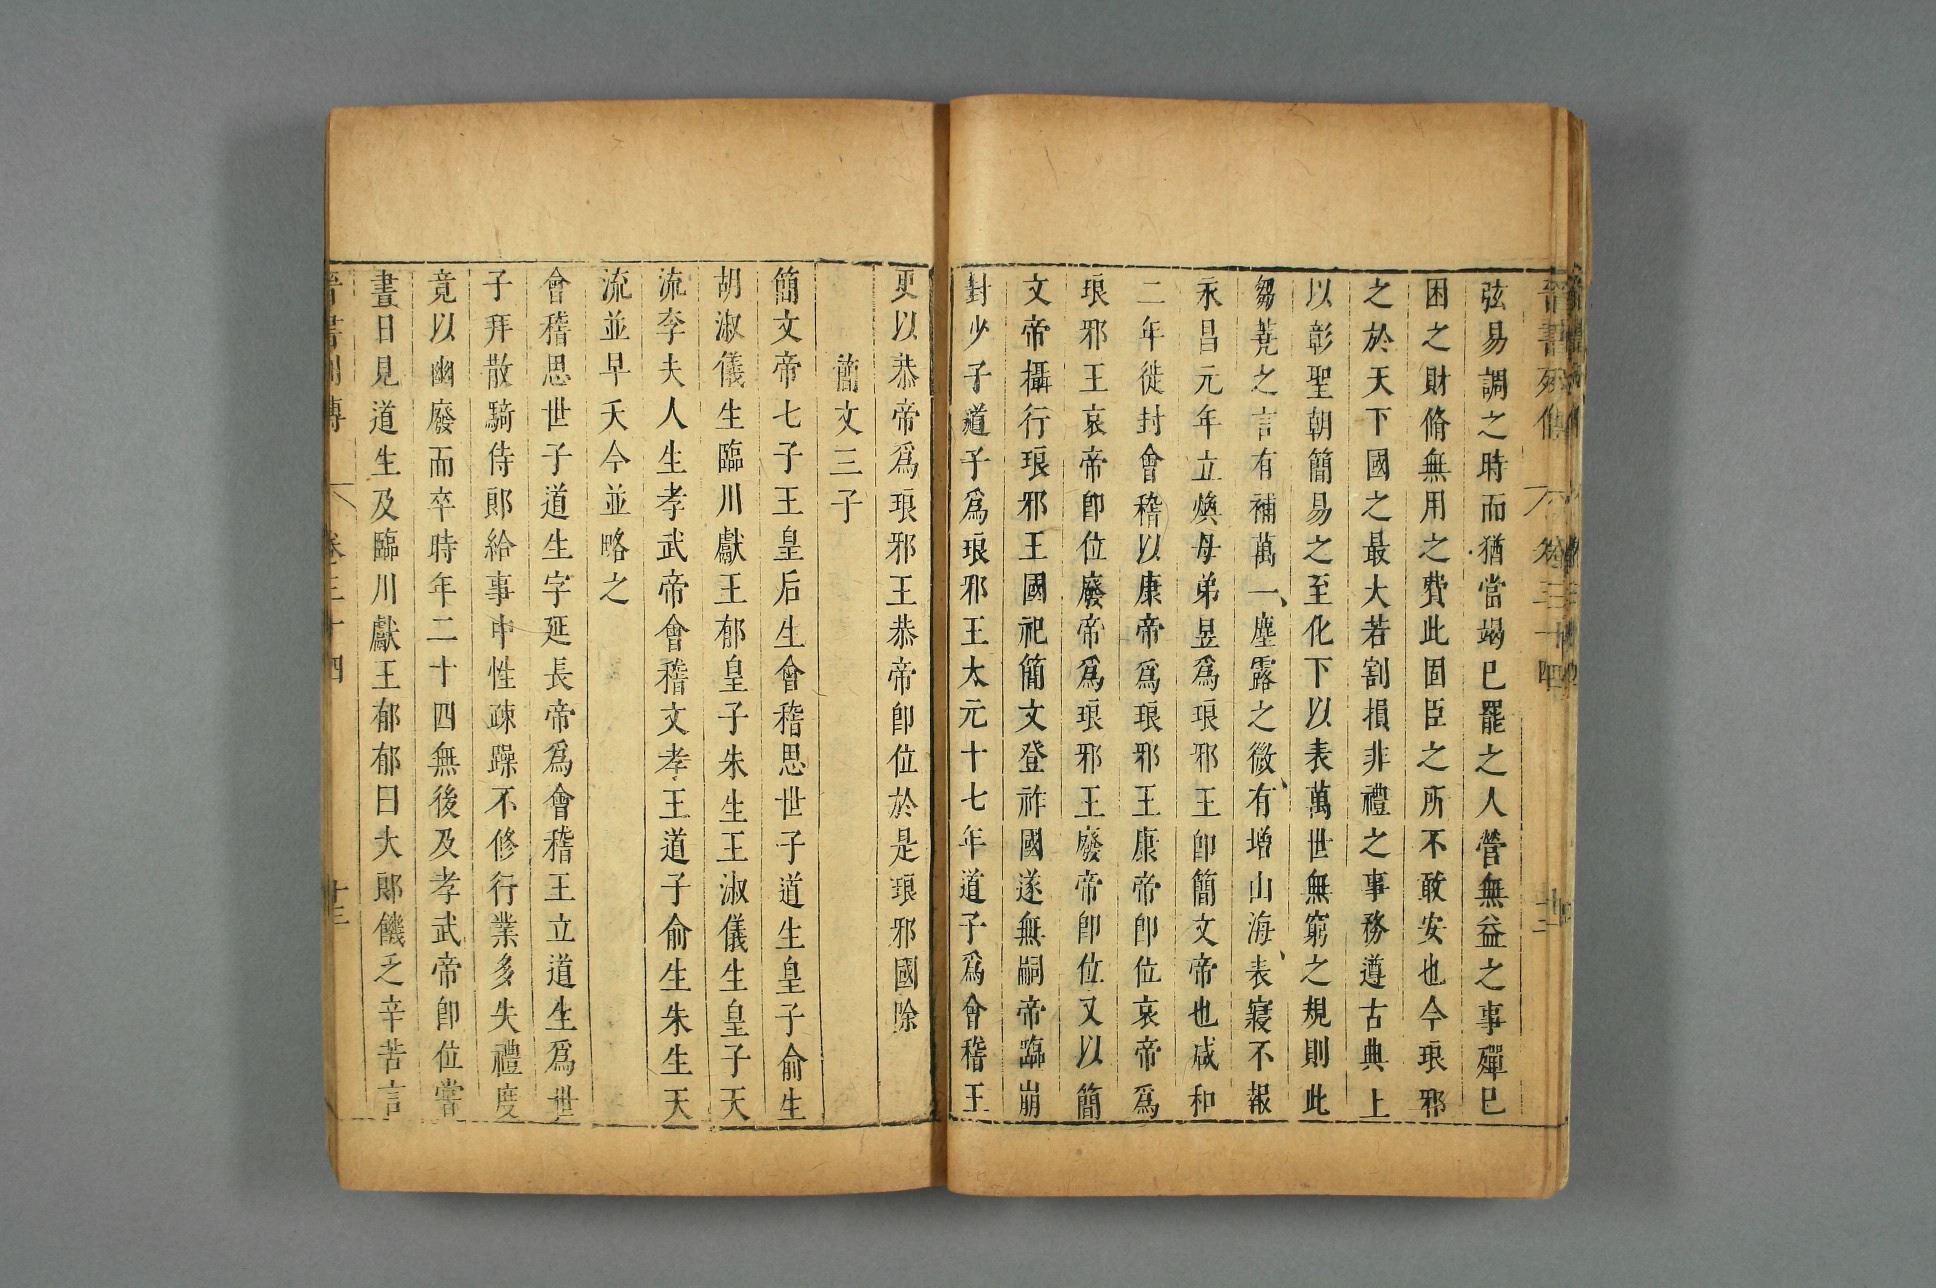 晉書列傳 卷三十四
弦易調之時而猶當竭巳罷之人營無益之事殫巳
困之財脩無用之費此固臣之所不敢安也今琅邪
之於天下國之最大若割損非禮之事務遵古典上
以彰聖朝簡易之至化下以表萬世無窮之規則此
芻蕘之言有補萬一塵露之微有增山海表寢不報
永昌元年立煥母弟昱爲琅邪王卽簡文帝也咸和
二年徙封會稽以康帝爲琅邪王康帝卽位哀帝爲
琅邪王哀帝卽位廢帝爲琅邪王廢帝卽位又以簡
文帝攝行琅邪王國祀簡文登祚國遂無嗣帝臨崩
封少子道子爲琅邪王太元十七年道子爲會稽王
更以恭帝爲琅邪王恭帝卽位於是琅邪國除
簡文三子
簡文帝七子王皇后生會稽思世子道生皇子俞生
胡淑儀生臨川獻王郁皇子朱生王淑儀生皇子天
流李夫人生孝武帝會稽文孝王道子俞生朱生天
流並早夭今並略之
會稽思世子道生字延長帝爲會稽王立道生爲世
子拜散騎侍郎給事中性疎躁不修行業多失禮度
竟以幽廢而卒時年二十四無後及孝武帝卽位嘗
晝日見道生及臨川獻王郁郁曰大郎饑乏辛苦言
晉書列傳 卷三十四 廿三